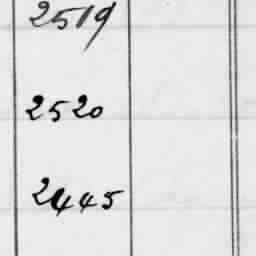 2519
2520
2445